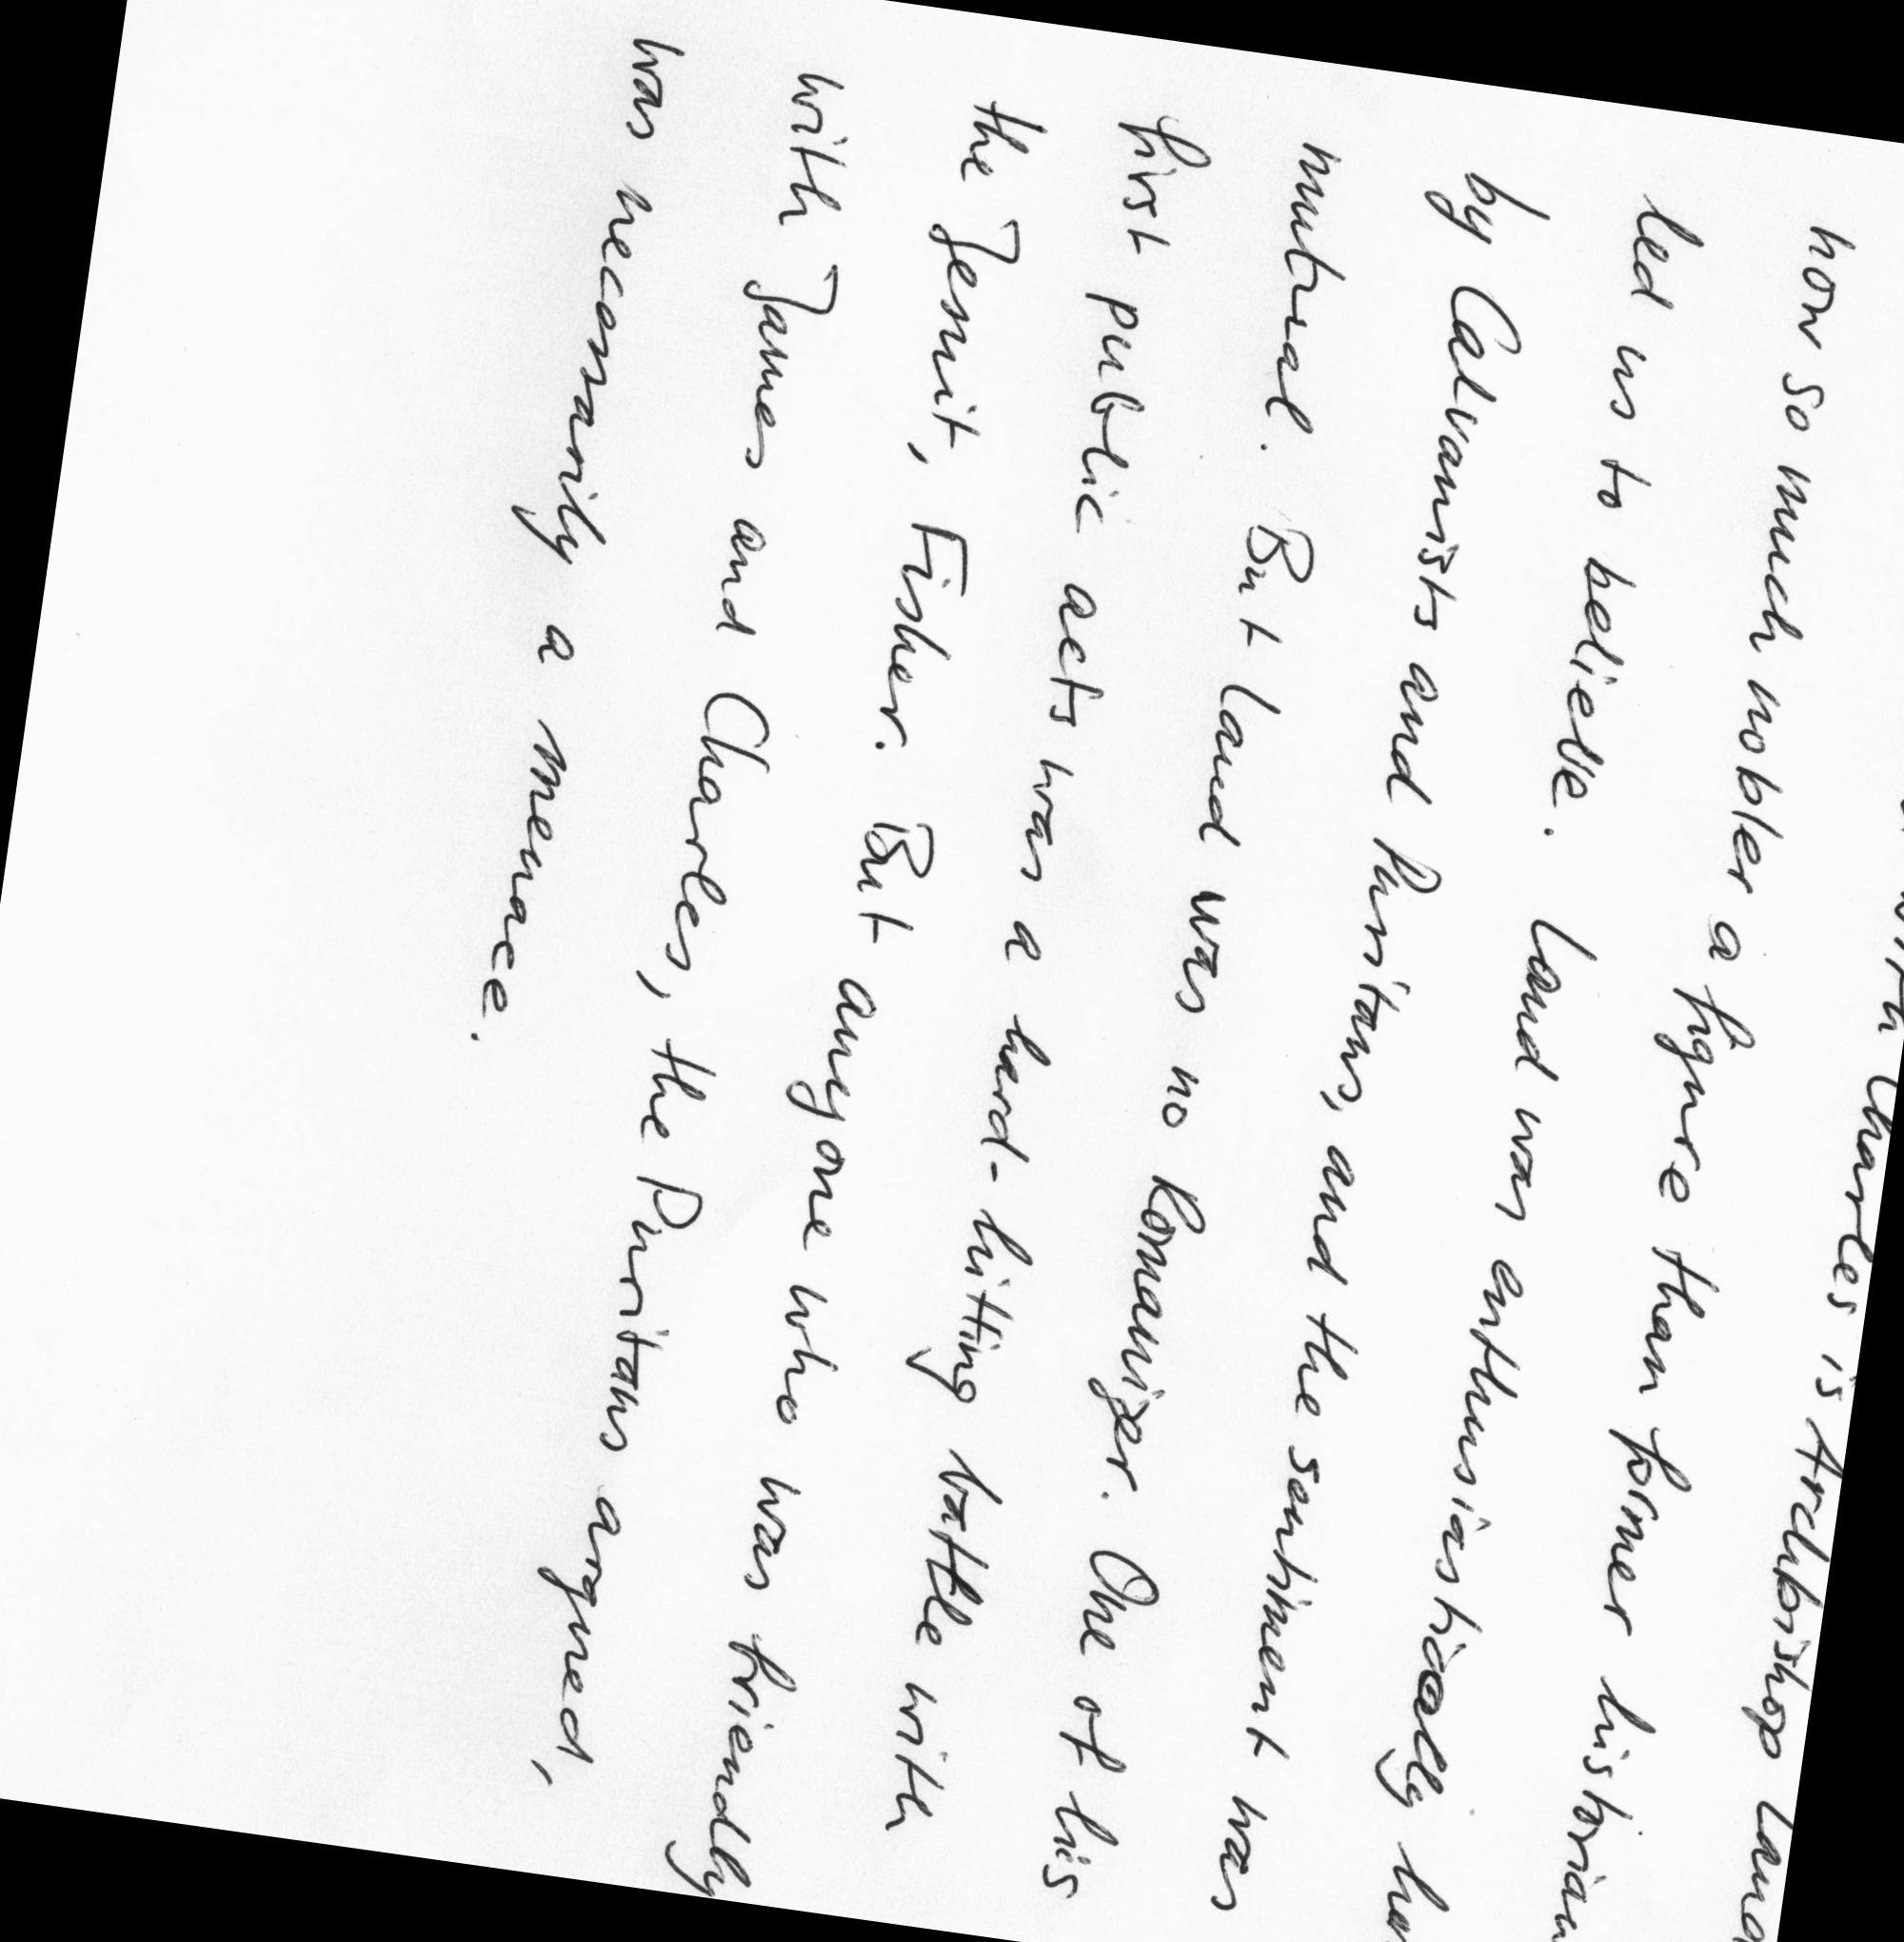 with Charles is Archbishop Laud
now so much nobler a figure than former historian
led us to believe. Laud was enthusiastically ha
by Calvanists and Puritans, and the sentiment was
mutual. But Laud was no Romanizer. One of his
first public acts was a hard-hitting battle with
the Jesuit, Fisher. But anyone who was friendly
with James and Charles, the Puritans argued,
was necessarily a menace.